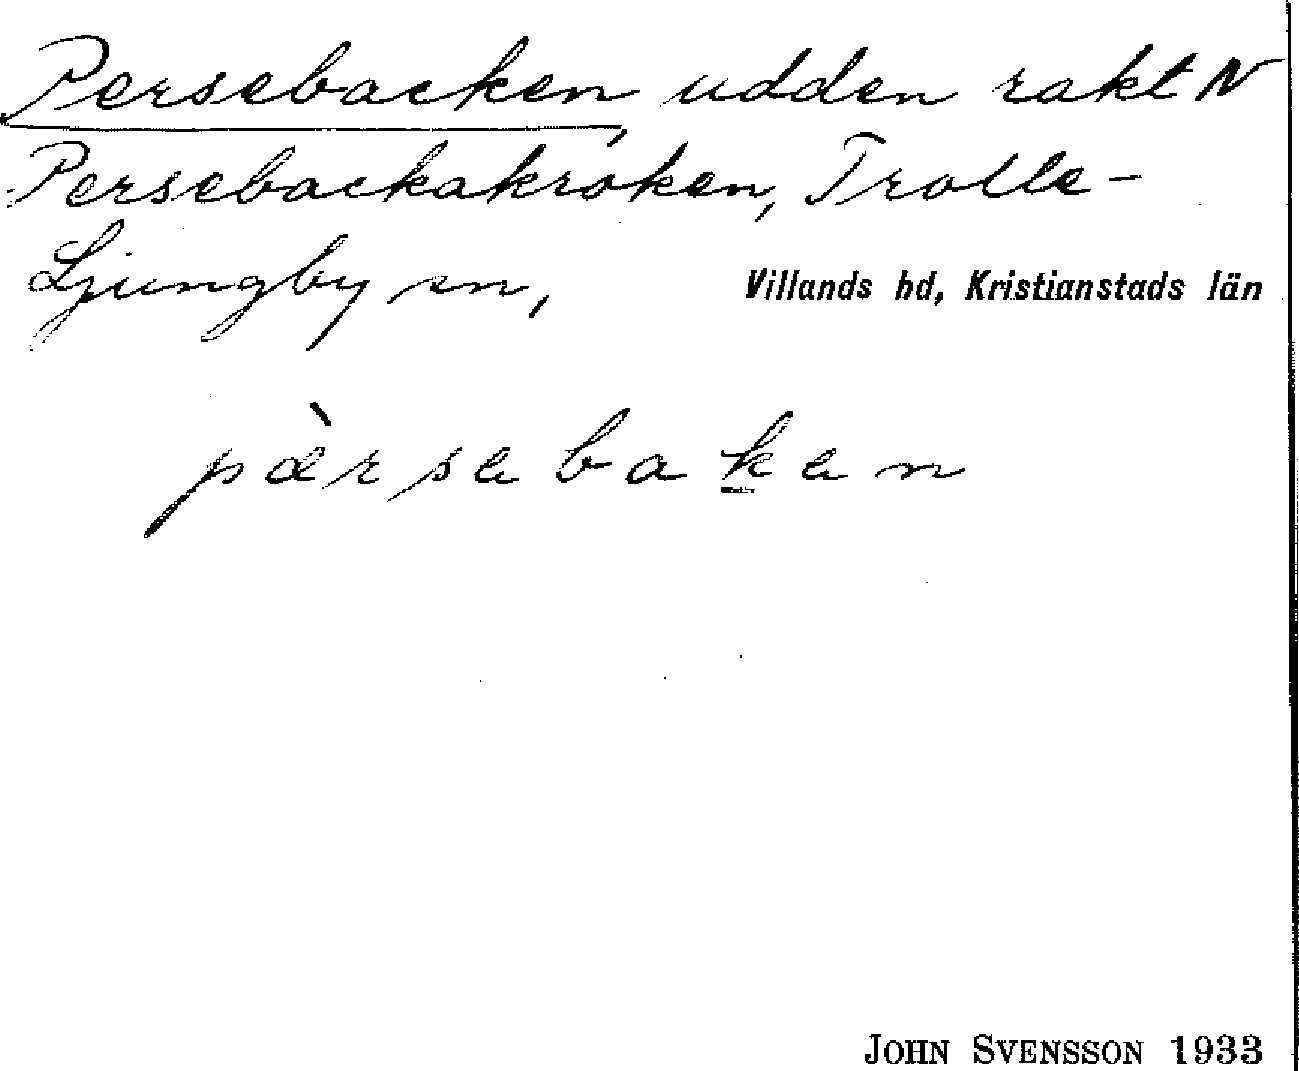 Persebacken, udden rakt N
Persebackakroken, Trolle-
Ljungby sn, Villands hd, Kristianstads län
pæ̀rsebaken
JOHN SVENSSON 1933